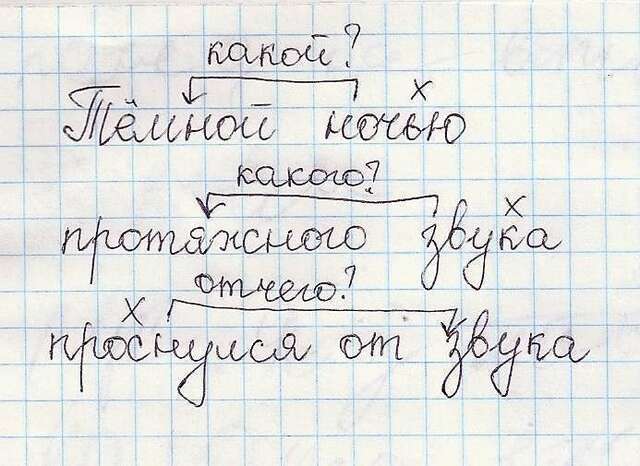 какой?
х
Тёмной ночью
какого?
х
протяжного звука
отчего?
х
проснулся от звука